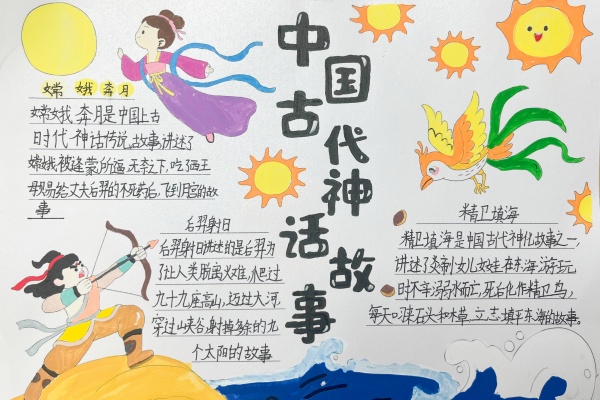 中国古代神话故事
嫦娥奔月
嫦娥奔月是中国上古
时代神话传说，故事讲述了
嫦娥被逢蒙所逼，无奈之下，吃了西王
母赐给丈夫后羿的不死药后，飞到月宫的故
事
后羿射日
后羿射日讲述的是后羿为
了让人类脱离灾难，爬过
九十九座高山，迈过大河，
穿过峡谷，射掉多余的九
个太阳的故事
精卫填海
精卫填海是中国古代神化故事之一，
讲述了炎帝女儿女娃在东海游玩
时不幸溺水而亡，死后化作精卫鸟，
每天叼来石头和木草，立志填平东海的故事。